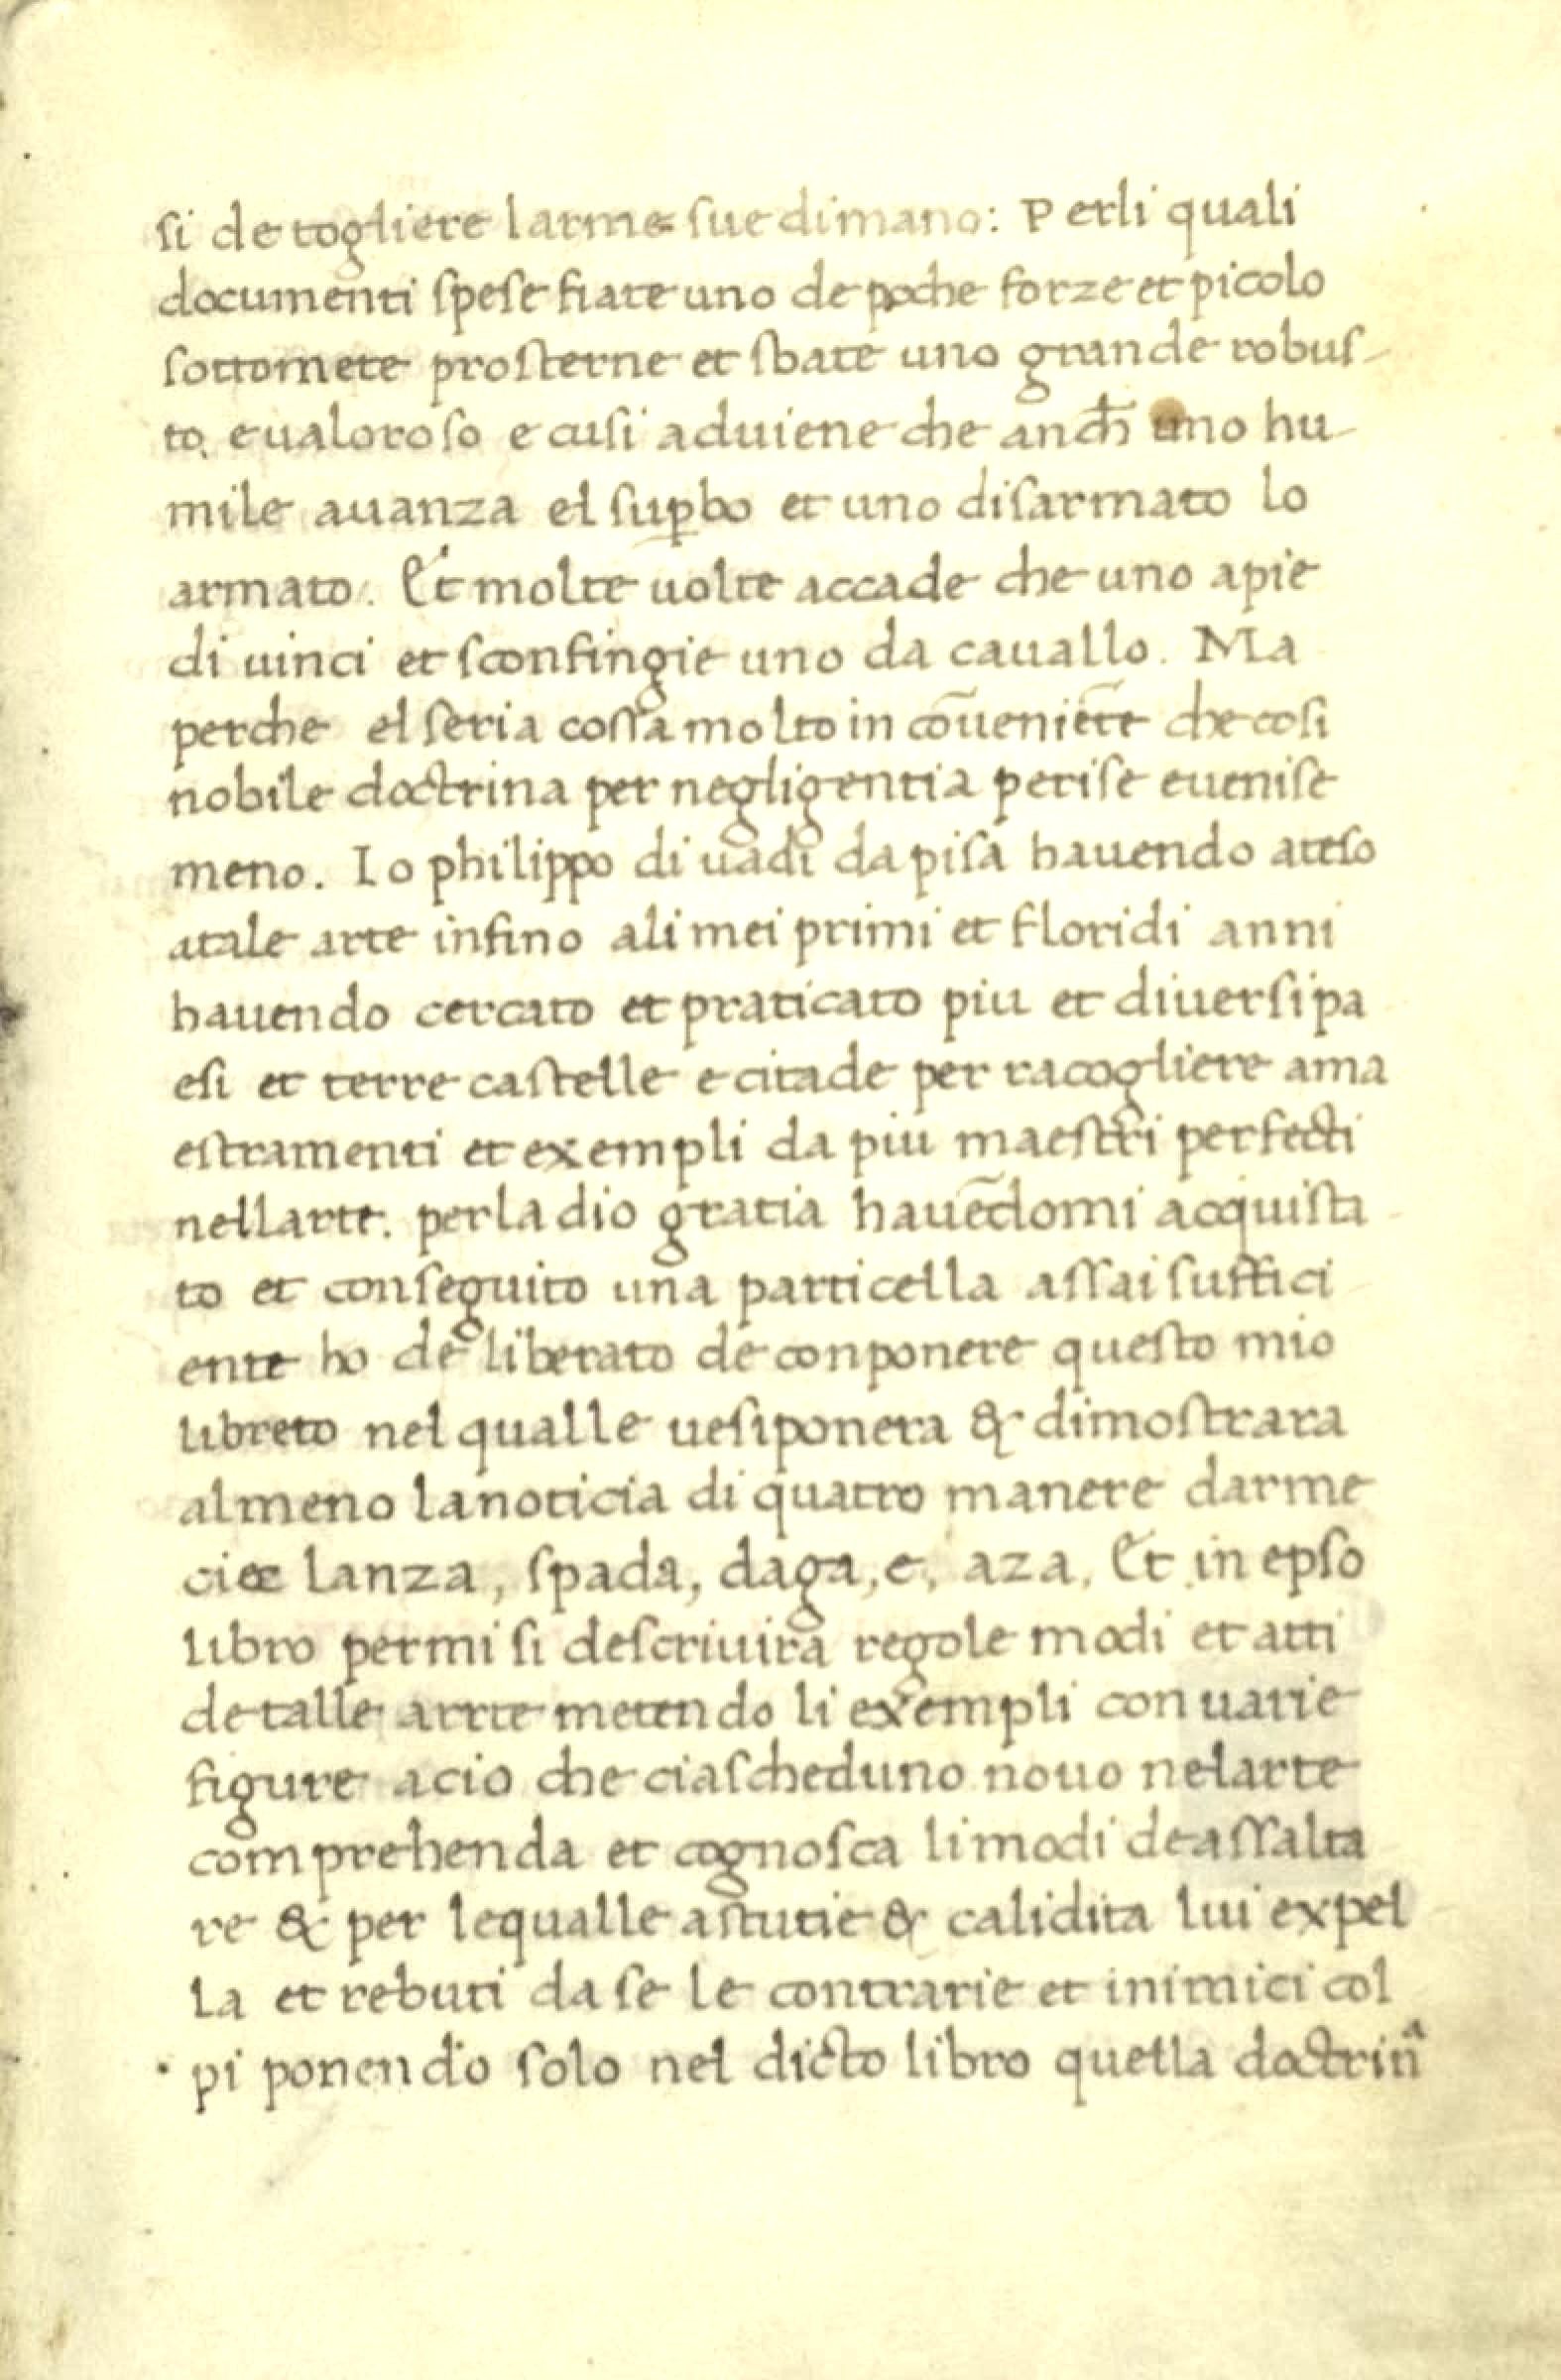 si de togliere larme sue di mano: Perli quali
documenti spese fiate uno de poche forze et picolo
sottomete prosterne et sbate uno grande robus-
to. e ualoroso e cusi aduiene che anch̄ uno hu-
mile auanza el sup̱bo et uno disarmato lo
armato. Et molte uolte accade che uno apie
di uinci et sconfingie uno da cauallo. Ma
perche el seria cossa molto in cōueniēte che cosi
nobile doctrina per negligentia perise euenise
meno. Io philippo di uadi da pisa hauendo ateso
atale arte infino ali mei primi et floridi anni
hauendo cercato et praticato piu et diuersi pa
esi et terre castelle e citade per racogliere ama
estramenti et exempli da piu maestri perfecti
nellarte. perla dio gratia hauēdomi acquista
to et conseguito una particella assai suffici
ente ho de liberato de conponere questo mio
libreto nel qualle uesiponera & dimostrara
almeno lanoticia di quatro manere darme
cioe lanza, spada, daga, e, aza. Et in epso
libro permi si descriuira regole modi et atti
de talle arrte metendo li exempli con uarie
figure acio che ciascheduno nouo nelarte
comprehenda et cognosca li modi de assalta
re & per lequalle astutie & calidita lui expel
la et rebuti da se le contrarie et inimici col
pi ponendo solo nel dicto libro quella doctrinᵃ